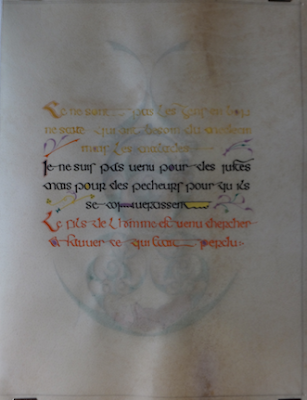 Ce ne sont pas les gens en bon
ne sante qui ont besoin du medecin
mais les malades
Je ne suis pas venu pour des justes
mais pour des pecheurs pour qu ils
se
Le fils de l'omme est venu chercher
et sauver ce qui était perdu